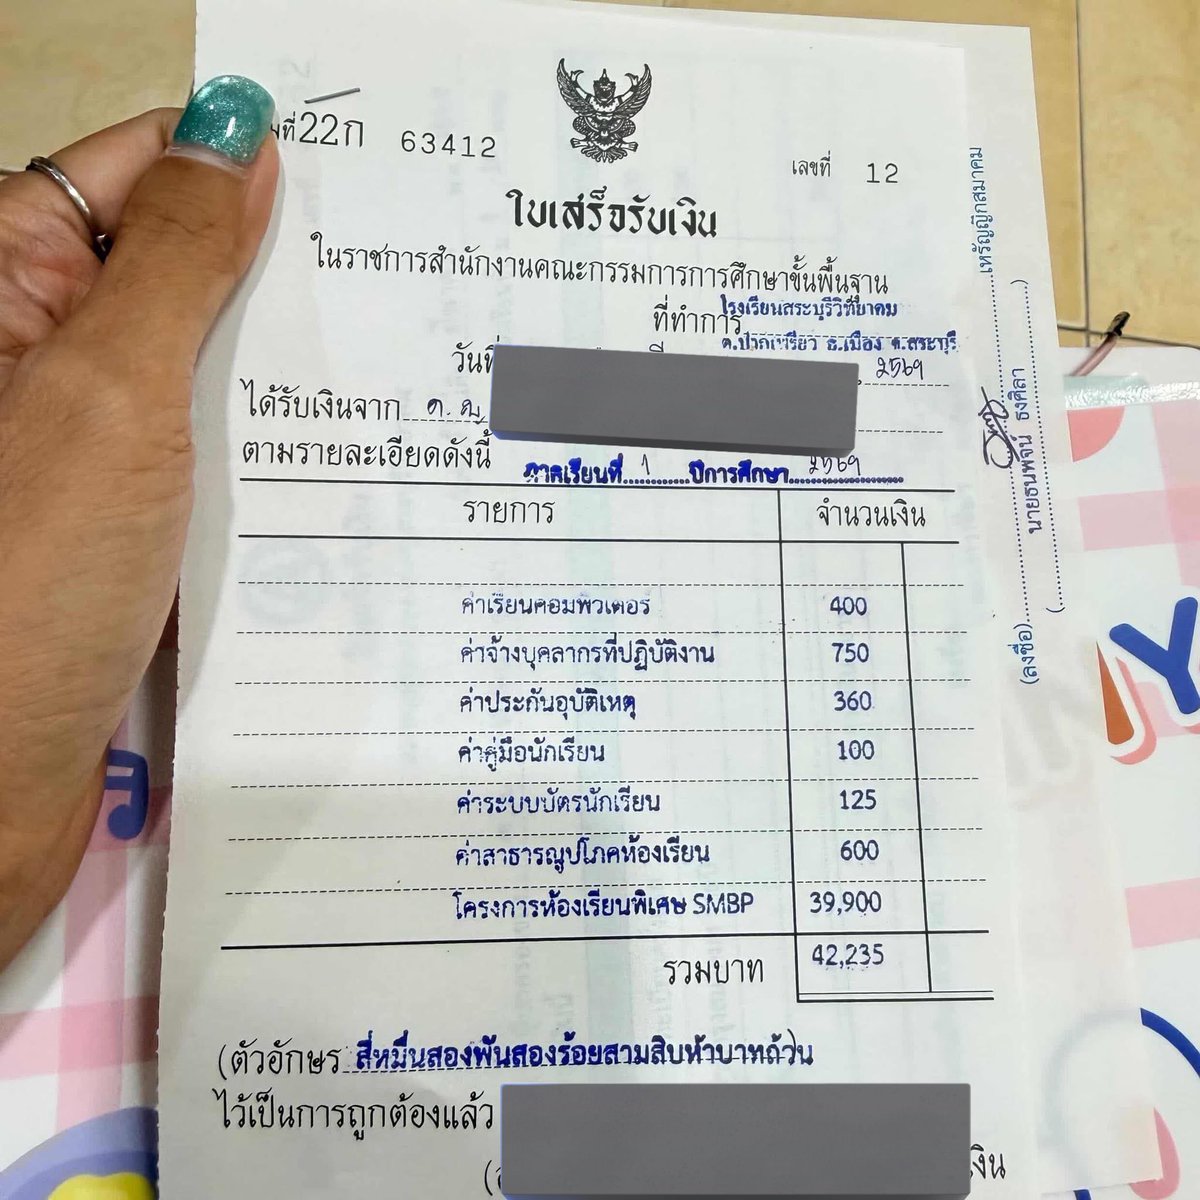 ที่ 22ก 63412
เลขที่ 12
ใบเสร็จรับเงิน
ในราชการสำนักงานคณะกรรมการการศึกษาขั้นพื้นฐาน
ที่ทำการ โรงเรียนสระบุรีวิทยาคม
ต.ปากเพรียว อ.เมือง จ.สระบุรี
วันที่ 2569
ได้รับเงินจาก ด.ญ
ตามรายละเอียดดังนี้ ภาคเรียนที่ 1 ปีการศึกษา 2569
รายการ จำนวนเงิน
ค่าเรียนคอมพิวเตอร์ 400
ค่าจ้างบุคลากรที่ปฏิบัติงาน 750
ค่าประกันอุบัติเหตุ 360
ค่าคู่มือนักเรียน 100
ค่าระบบบัตรนักเรียน 125
ค่าสาธารณูปโภคห้องเรียน 600
โครงการห้องเรียนพิเศษ SMBP 39,900
รวมบาท 42,235
(ตัวอักษร สี่หมื่นสองพันสองร้อยสามสิบห้าบาทถ้วน)
ไว้เป็นการถูกต้องแล้ว
เงิน
(ลงชื่อ) เหรัญญิกสมาคม
( นายธนพจน์ ธงศิลา )